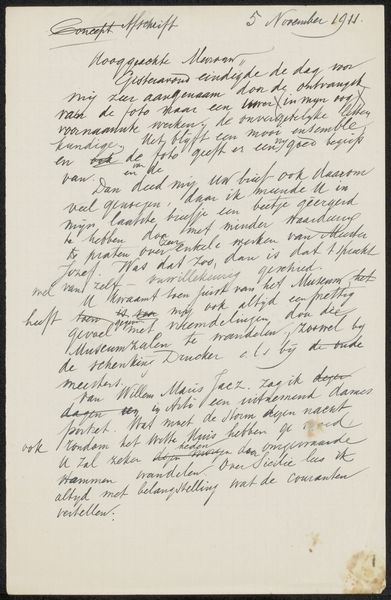 Concept Afschrift 5 November 1911.
Hooggeachte Mevrouw,,
Gisteravond eindigde de dag voor
mij zeer aangenaam door de ontvangst
van de foto naar een (in mijn oog)
voornaamste werken, de onvergetelijke
kundige. Het blijft een mooi ensemble
en ook de foto geeft er een goed begrip
van. en de
Dan deed mij Uw brief ook daarom
veel genoegen, daar ik meende U in
mijn laatste briefje een beetje geërgerd
te hebben door met minder waardeering
te praten over enkele werken van Meester
Jozef. Was dat zoo, dan is dat 't spreekt
wel vanzelf onwillekeurig geschied.
U kwaamt toen juist van het Museum, het
heeft mij ook altijd een prettig
gevoel gegeven met vreemdelingen door die
Museumzalen te wandelen, zoowel bij
de schenking Drucker als bij de oude
meesters.
Van Willem Maris Jacz. zag ik
in Arti een uitnemend dames
portret. Wat moet de storm dezen nacht
rondom het Witte Huis hebben
ook U zal zeker heden omgewaaide
stammen wandelen. Over Siedie lees ik
altijd met belangstelling wat de couranten
vertellen.